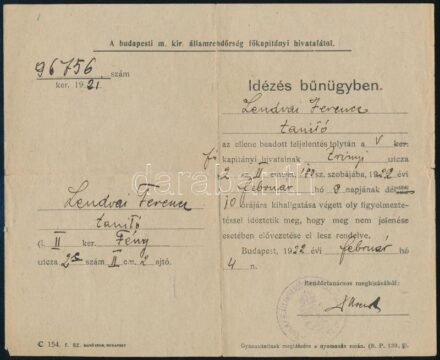 A budapesti m. kir. államrendőrség főkapitányi hivatalától.
96756 szám
ker. 1921.
Idézés bűnügyben.
Lendvai Ferenc
tanító
az ellene beadott feljelentés folytán a V ker.
kapitányi hivatalnak utcza
2 sz. II em. szobájába, 1922 évi
február hó 8 napjának délelőtt
10 órájára kihallgatása végett oly figyelmezte-
téssel idéztetik meg, hogy meg nem jelenése
esetében elővezetése el lesz rendelve.
Budapest, 1922 évi február hó
4 n.
Rendőrtanácsos megbízásából:
Lendvai Ferenc
tanító
II ker. Fény
utcza szám II em. 2 ajtó.
C 154. r. sz.
Gyanúsítottnak megidézése a nyomozás során. (B. P. 139. §).
darabanth